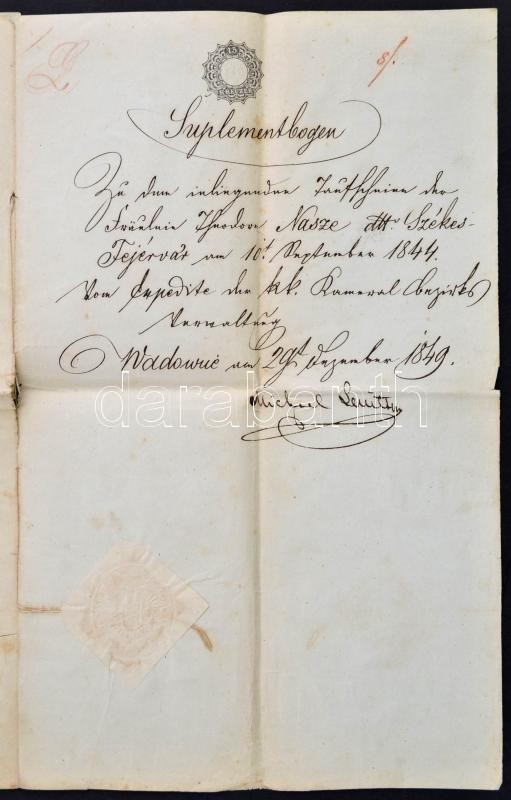 15
KREUZER
s/.
Suplementbogen
Zu dem inliegenden Taufscheine der
Fräulein Theodora Nasze Székes-
Fejérvár am 10t September 1844.
Vom Expedite der kk. Kameral Bezirks
Verwaltung
Wadowic am 29t Dezember 1849.
Michael
darabanth